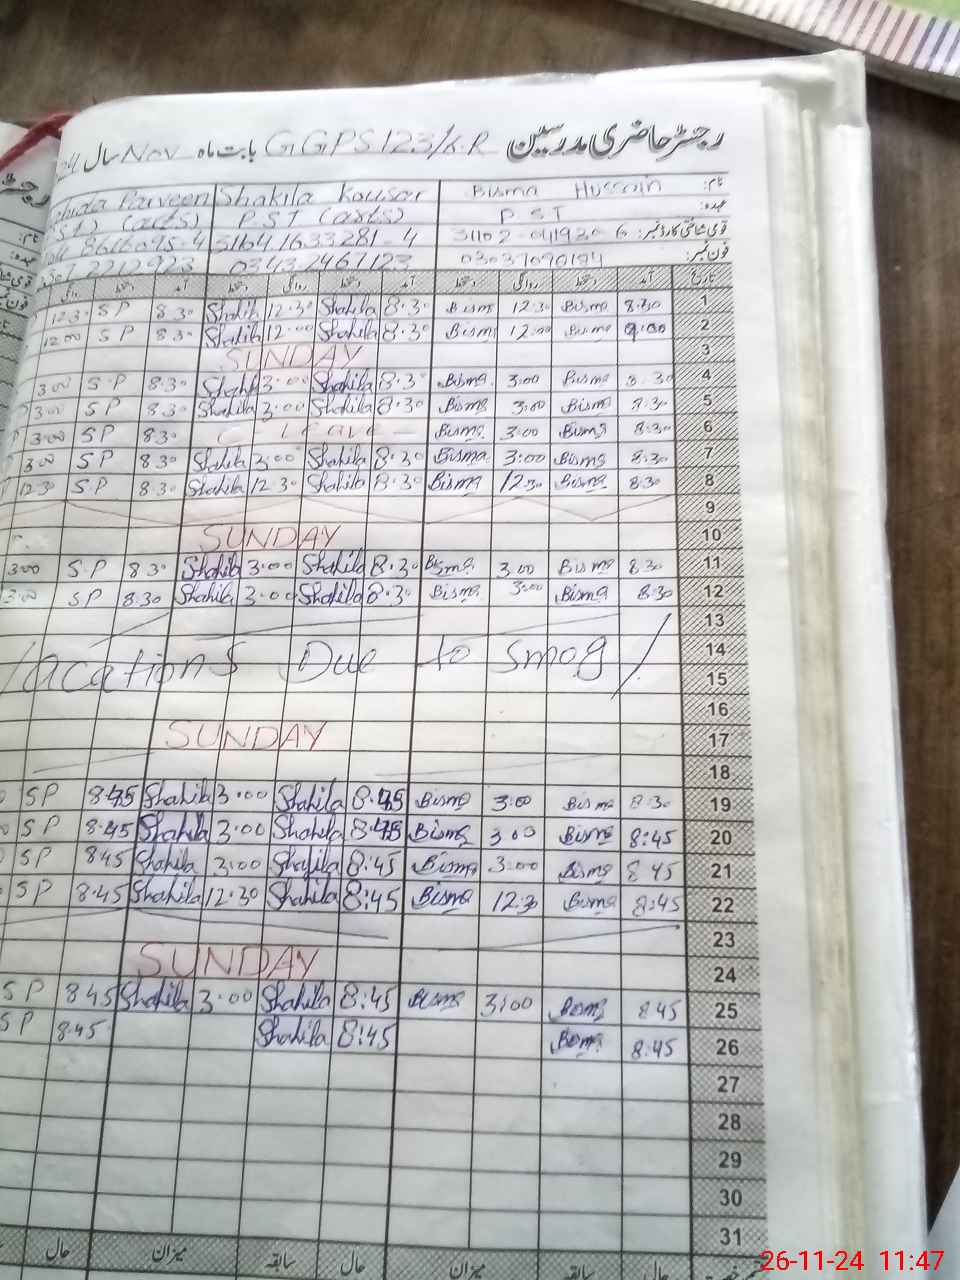 رجسٹر حاضری مدرسین GGPS 123/K.R بابت ماہ Nov سال
نام: Bisma Hussain Shakila Kousar Parveen
عہدہ: PST PST (arts) (arts)
قومی شناختی کارڈ نمبر:
فون نمبر: 03432467123
تاریخ آمد دستخط روانگی دستخط آمد دستخط روانگی دستخط آمد
12.30 SP 8.30 Shakila 12.30 Shakila 8.30 Bisma 12.30 Bisma 8:30 1
12.00 SP 8.30 Shakila 12.00 Shakila 8.30 Bisma 12.00 Bisma 9:00 2
SUNDAY 3
3.00 S.P 8.30 Shakila 3.00 Shakila 8.30 Bisma 3:00 Bisma 8.30 4
3.00 SP 8.30 Shakila 3.00 Shakila 8.30 Bisma 3:00 Bisma 8:30 5
3.00 SP 8.30 C Leave Bisma 3:00 Bisma 8:30 6
3.00 SP 8.30 Shakila 3.00 Shakila 8.30 Bisma 3:00 Bisma 8:30 7
12.30 SP 8.30 Shakila 12.30 Shakila 8.30 Bisma 12.30 Bisma 8:30 8
9
SUNDAY 10
3.00 S.P 8.30 Shakila 3.00 Shakila 8.30 Bisma 3.00 Bisma 8.30 11
3.00 SP 8.30 Shakila 3.00 Shakila 8.30 Bisma 3:00 Bisma 8:30 12
13
Vacations Due to Smog 14
15
16
SUNDAY 17
18
SP 8.45 Shakila 3.00 Shakila 8.45 Bisma 3:00 Bisma 8:30 19
SP 8.45 Shakila 3.00 Shakila 8.45 Bisma 3:00 Bisma 8:45 20
SP 8.45 Shakila 3.00 Shakila 8:45 Bisma 3:00 Bisma 8 45 21
SP 8.45 Shakila 12.30 Shakila 8:45 Bisma 12:30 Bisma 8:45 22
23
SUNDAY 24
SP 8.45 Shakila 3.00 Shakila 8:45 Bisma 3:00 Bisma 8.45 25
SP 8.45 Shakila 8:45 Bisma 8:45 26
27
28
29
30
31
حال سابقہ میزان حال سابقہ میزان حال
26-11-24 11:47